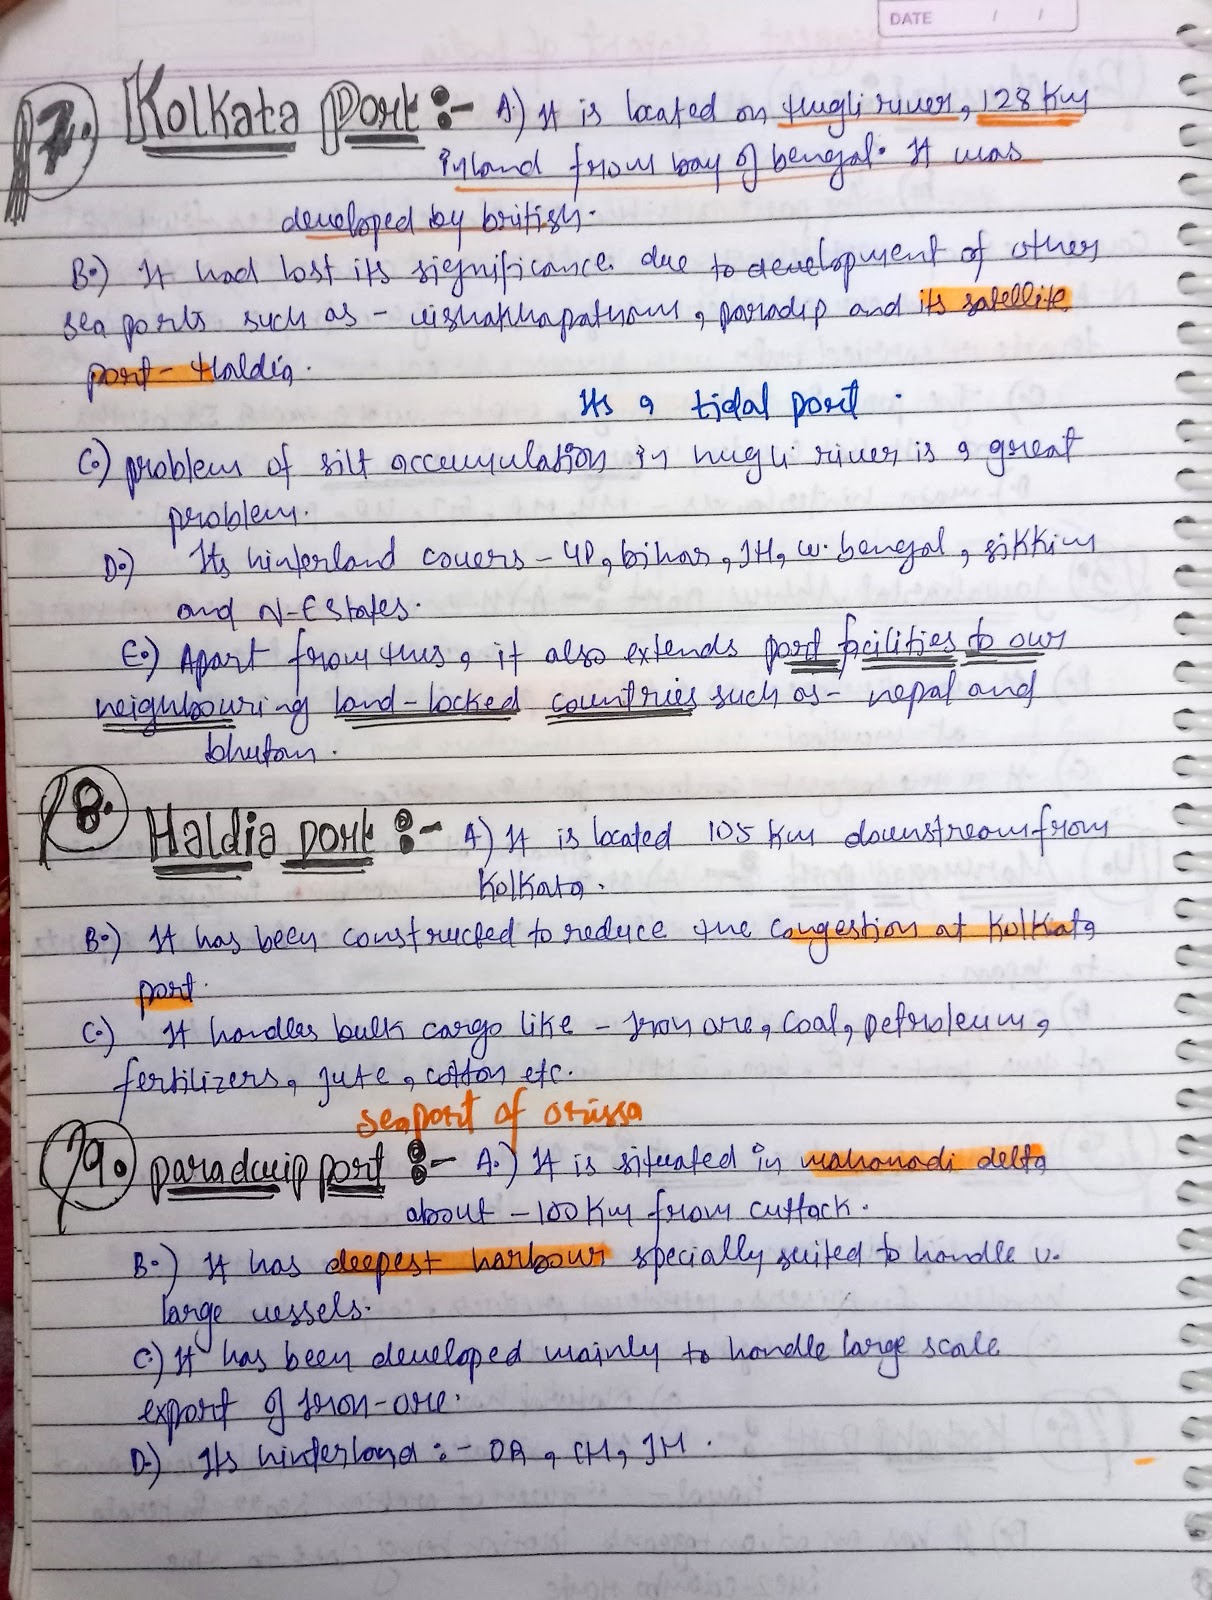 DATE / /
7. Kolkata Port :- A.) It is located on Hugli river, 128 Km
inland from bay of bengal. It was
developed by british.
B.) It had lost its significance due to development of other
sea ports such as - vishakhapatnam, paradip and its satellite
port - Haldia.
Its a tidal port.
C.) problem of silt accumulation in hugli river is a great
problem.
D.) Its hinterland covers - UP, bihar, JH, w. bengal, sikkim
and N-E States.
E.) Apart from this, it also extends port facilities to our
neighbouring land-locked countries such as - nepal and
bhutan.
8. Haldia port :- A) It is located 105 Km downstream from
Kolkata.
B.) It has been constructed to reduce the congestion at Kolkata
port.
C.) It handles bulk cargo like - Iron ore, coal, petroleum,
fertilizers, jute, cotton etc.
seaport of orissa
9. paradwip port :- A.) It is situated in mahanadi delta
about - 100 Km from cuttack.
B.) It has deepest harbour specially suited to handle v.
large vessels.
C.) It has been developed mainly to handle large scale
export of Iron-ore.
D.) Its hinterland :- OR, CH, JH.